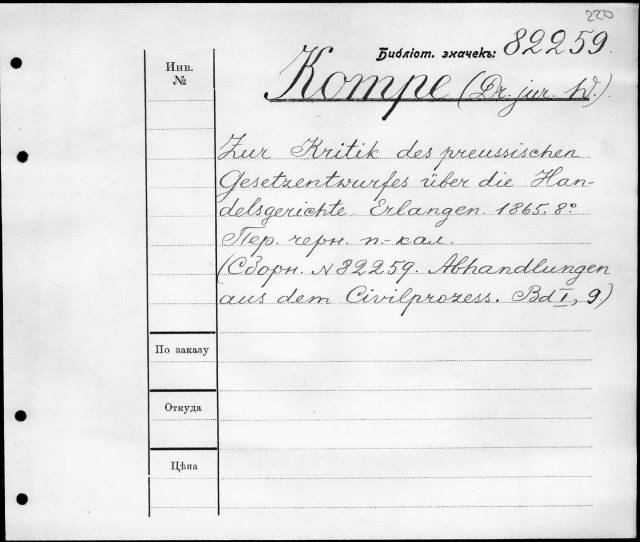 220
Библіот. значекъ: 82259.
Инв.
№
Kompe (Dr. jur. W.).
Zur Kritik des preussischen
Gesetzentwurfes über die Han-
delsgerichte. Erlangen. 1865. 8º
Пер. черн. п.-кал.
(Сборн. N 82259. Abhandlungen
aus dem Civilprozess. Bd I, 9)
По заказу
Откуда
Цѣна